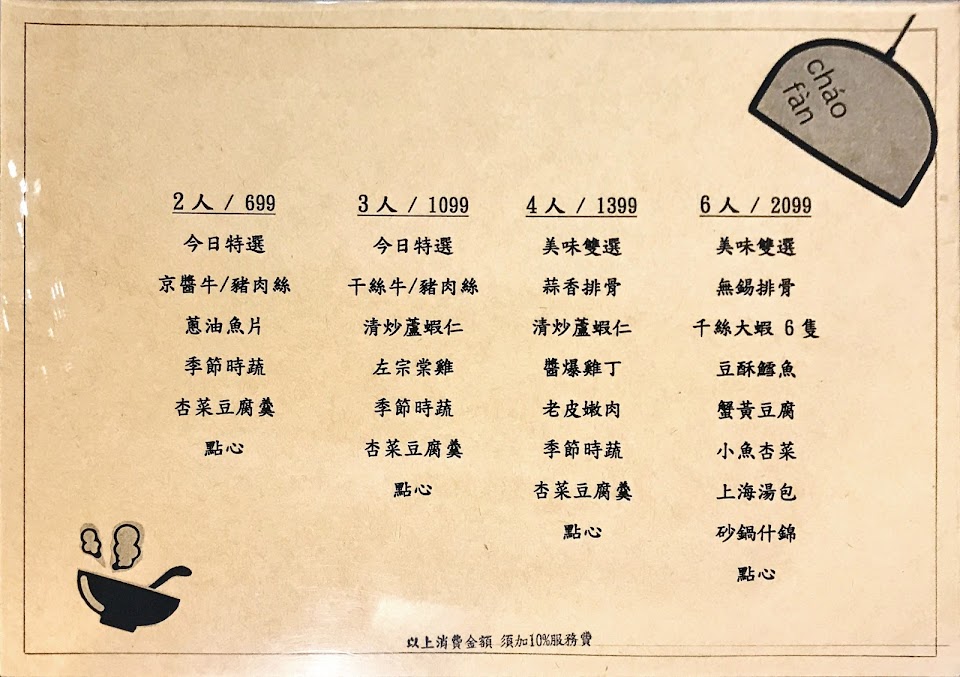 cháo
fàn
2人 / 699
今日特選
京醬牛/豬肉絲
蔥油魚片
季節時蔬
杏菜豆腐羹
點心
3人 / 1099
今日特選
干絲牛/豬肉絲
清炒蘆蝦仁
左宗棠雞
季節時蔬
杏菜豆腐羹
點心
4人 / 1399
美味雙選
蒜香排骨
清炒蘆蝦仁
醬爆雞丁
老皮嫩肉
季節時蔬
杏菜豆腐羹
點心
6人 / 2099
美味雙選
無錫排骨
千絲大蝦 6 隻
豆酥鱈魚
蟹黃豆腐
小魚杏菜
上海湯包
砂鍋什錦
點心
以上消費金額 須加10%服務費